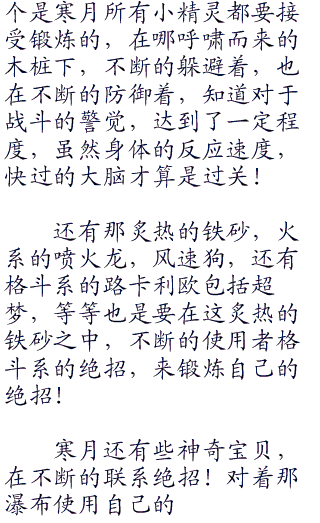 个是寒月所有小精灵都要接
受锻炼的，在哪呼啸而来的
木桩下，不断的躲避着，也
在不断的防御着，知道对于
战斗的警觉，达到了一定程
度，虽然身体的反应速度，
快过的大脑才算是过关！
还有那炙热的铁砂，火
系的喷火龙，风速狗，还有
格斗系的路卡利欧包括超
梦，等等也是要在这炙热的
铁砂之中，不断的使用者格
斗系的绝招，来锻炼自己的
绝招！
寒月还有些神奇宝贝，
在不断的联系绝招！对着那
瀑布使用自己的